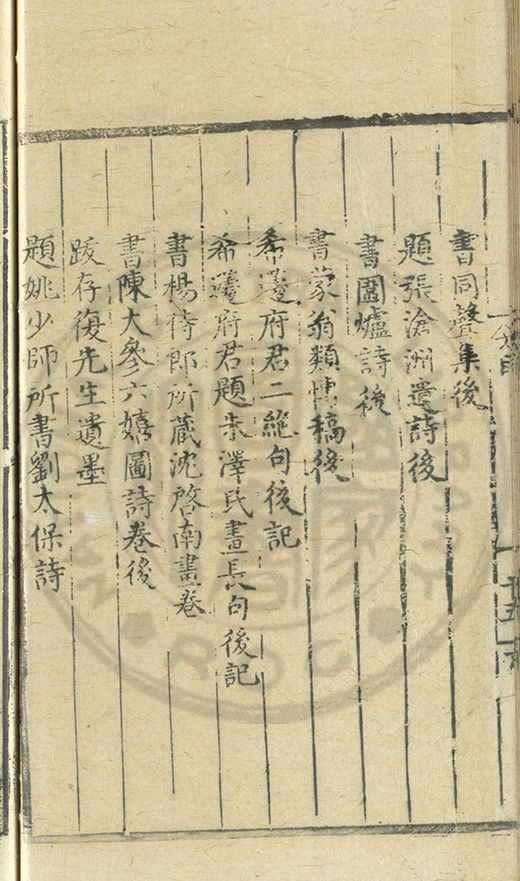 書同聲集後
題張滄洲遺詩後
書圍爐詩後
書蒙翁類博稿後
希蘧府君二絶句後記
希蘧府君題朱澤民畫長句後記
書楊侍郎所藏沈啓南畫卷
書陳大參六嬉圖詩卷後
跋存復先生遺墨
題姚少師所書劉太保詩